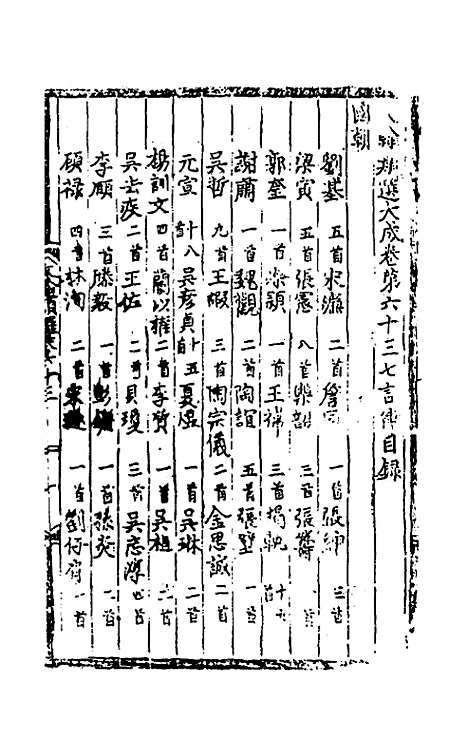 選大成卷第六十三七言律目録
國朝
劉基 五首 宋濂 二首 詹同 一首 張紳 三首
梁寅 五首 張憲 八首 樂韶 三首 張籌 一首
郭奎 一首 梁穎 一首 王禕 三首 揭軌 十首
謝肅 一首 魏觀 二首 陶誼 五首 張璧 一首
吳哲 九首 王 三首 陶宗儀 二首 金思誠 二首
元宣 十八首 吳彦貞 十五首 夏 一首 吳琳 二首
楊訓文 四首 藺以權 二首 李質 一首 吳植 二首
吳去疾 二首 王佐 二首 貝瓊 三首 吳志淳 四首
李願 三首 滕毅 一首 彭鏞 一首 張 一首
顧禄 四首 林洵 二首 宋 一首 劉 一首